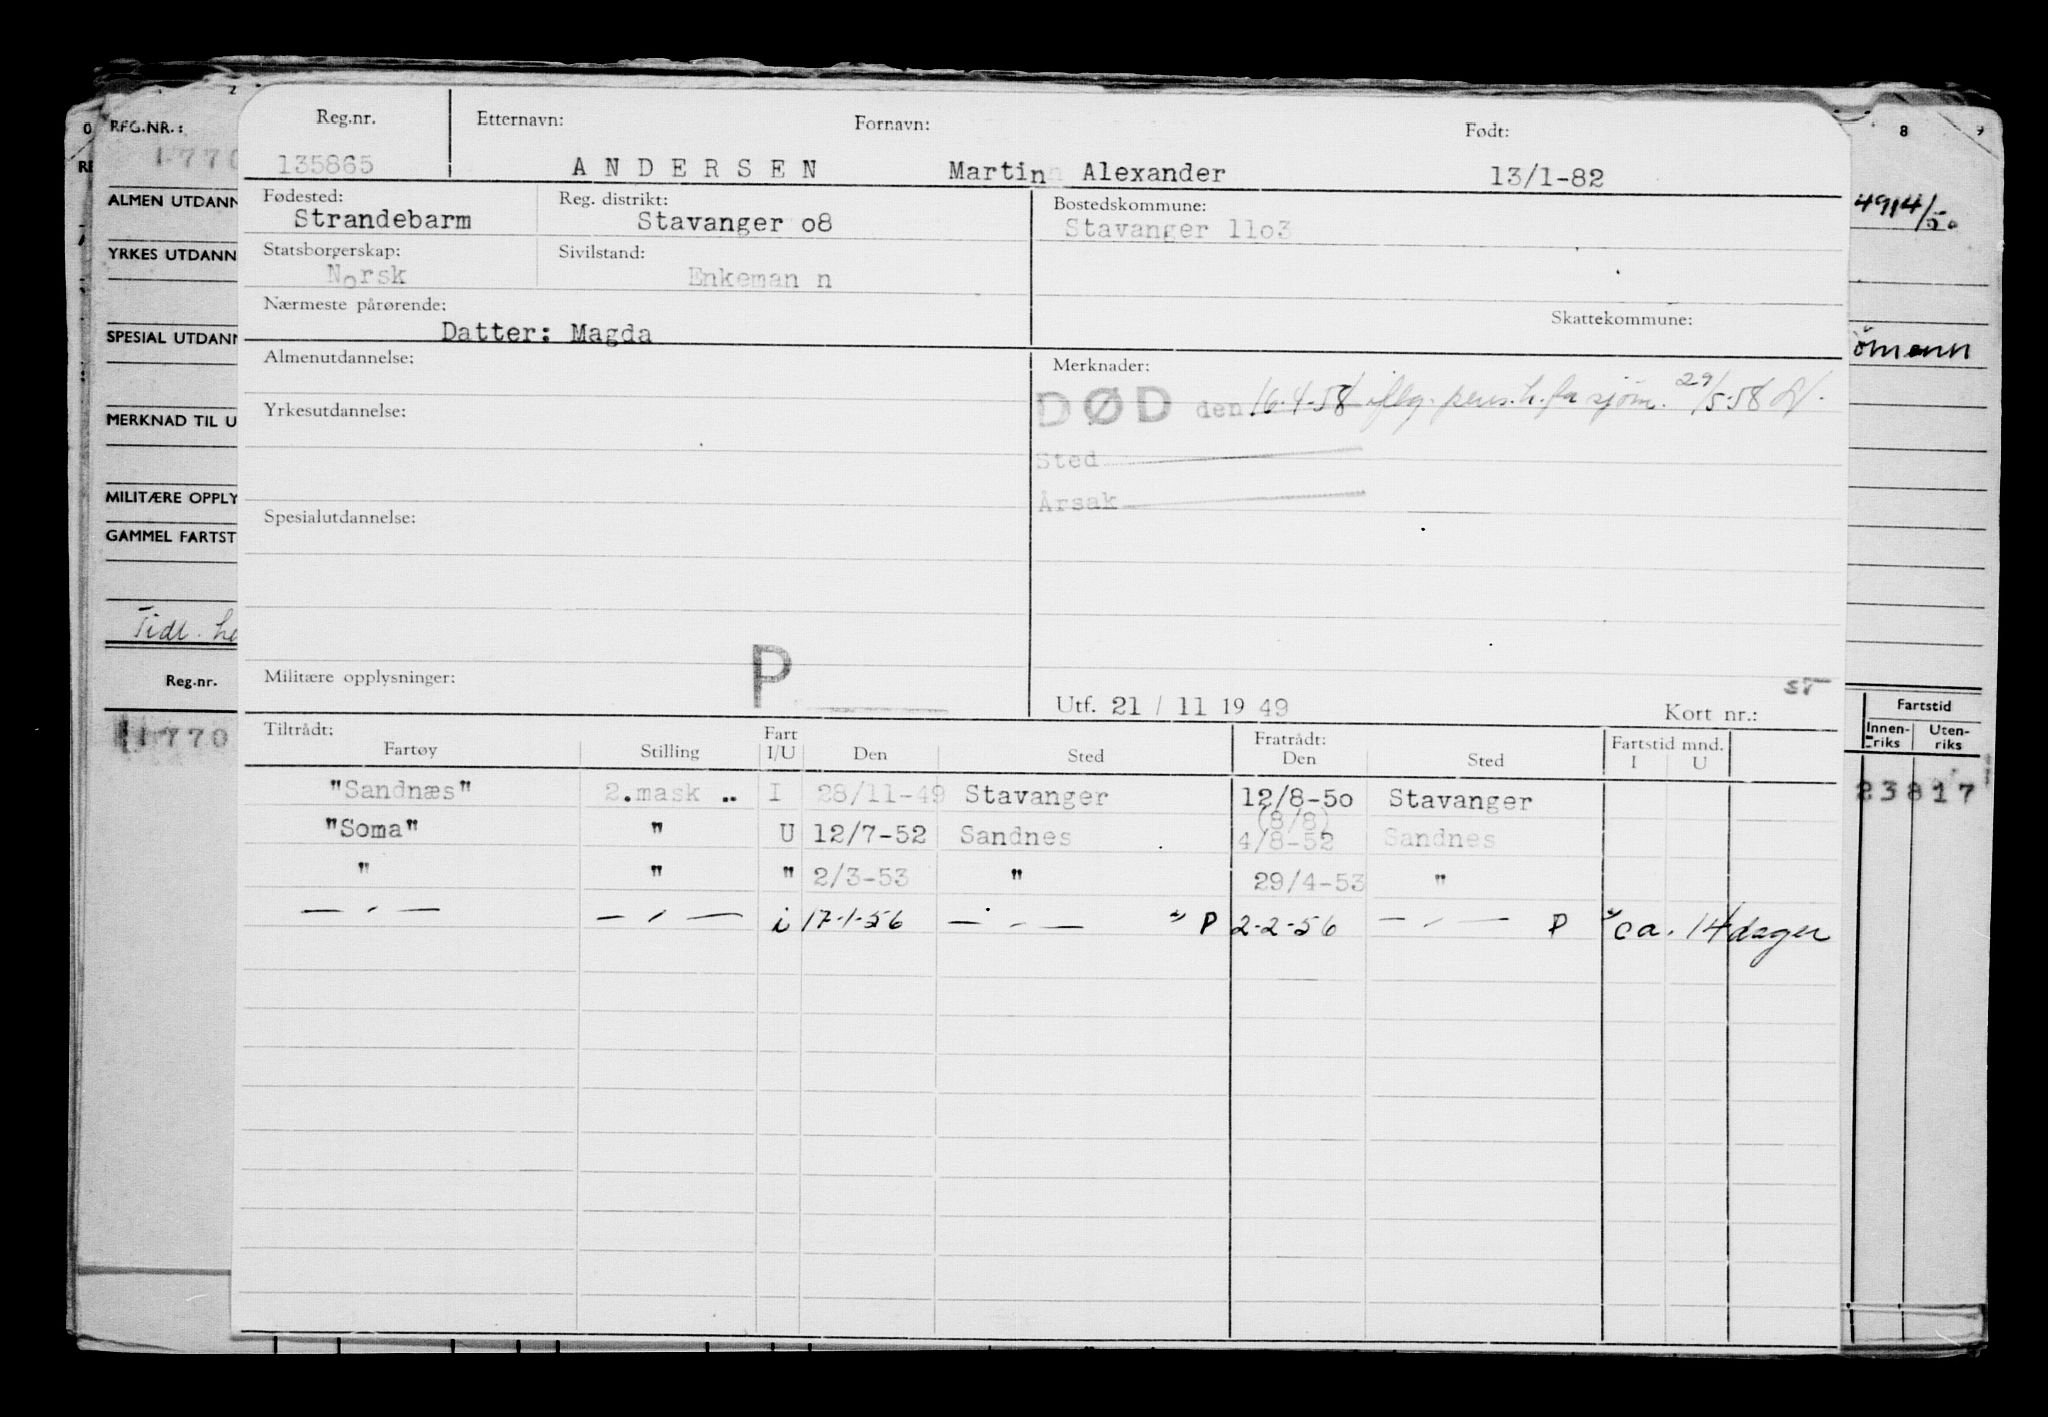 Reg.nr. Etternavn: Fornavn: Født:
135865 A N D E R S E N Martin Alexander 13/1-82
Fødested: Reg. distrikt: Bostedskommune:
Strandebarm Stavanger o8 Stavanger 11o3
Statsborgerskap: Sivilstand:
Norsk Enkeman n
Nærmeste pårørende: Skattekommune:
Datter: Magda
Almenutdannelse: Merknader:
DØD den 16.4.58 iflg. pens.h. for sjøm. 29/5-58
Yrkesutdannelse:
Sted
Årsak
Spesialutdannelse:
P
Militære opplysninger: ST
Utf. 21 / 11 19 49 Kort nr.:
Tiltrådt: Fart Fratrådt: Fartstid mnd.
Fartøy Stilling I/U Den Sted Den Sted I U
"Sandnæs" 2.mask .. I 28/11-49 Stavanger 12/8-5o Stavanger
(8/8)
"Soma" " U 12/7-52 Sandnes 4/8-52 Sandnes
" " " 2/3-53 " 29/4-53 "
— " — — " — i 17-1-56 — " — P 2-2-56 — " — P ca. 14 dager
2 8 9
0 REG.NR.:
1770
RE
ALMEN UTDANN
4914/50
YRKES UTDANN
SPESIAL UTDANN
ømann
MERKNAD TIL U
MILITÆRE OPPLY
GAMMEL FARTST
Tidl. he
Reg.nr.
1770
Fartstid
Innen-riks Uten-riks
23817